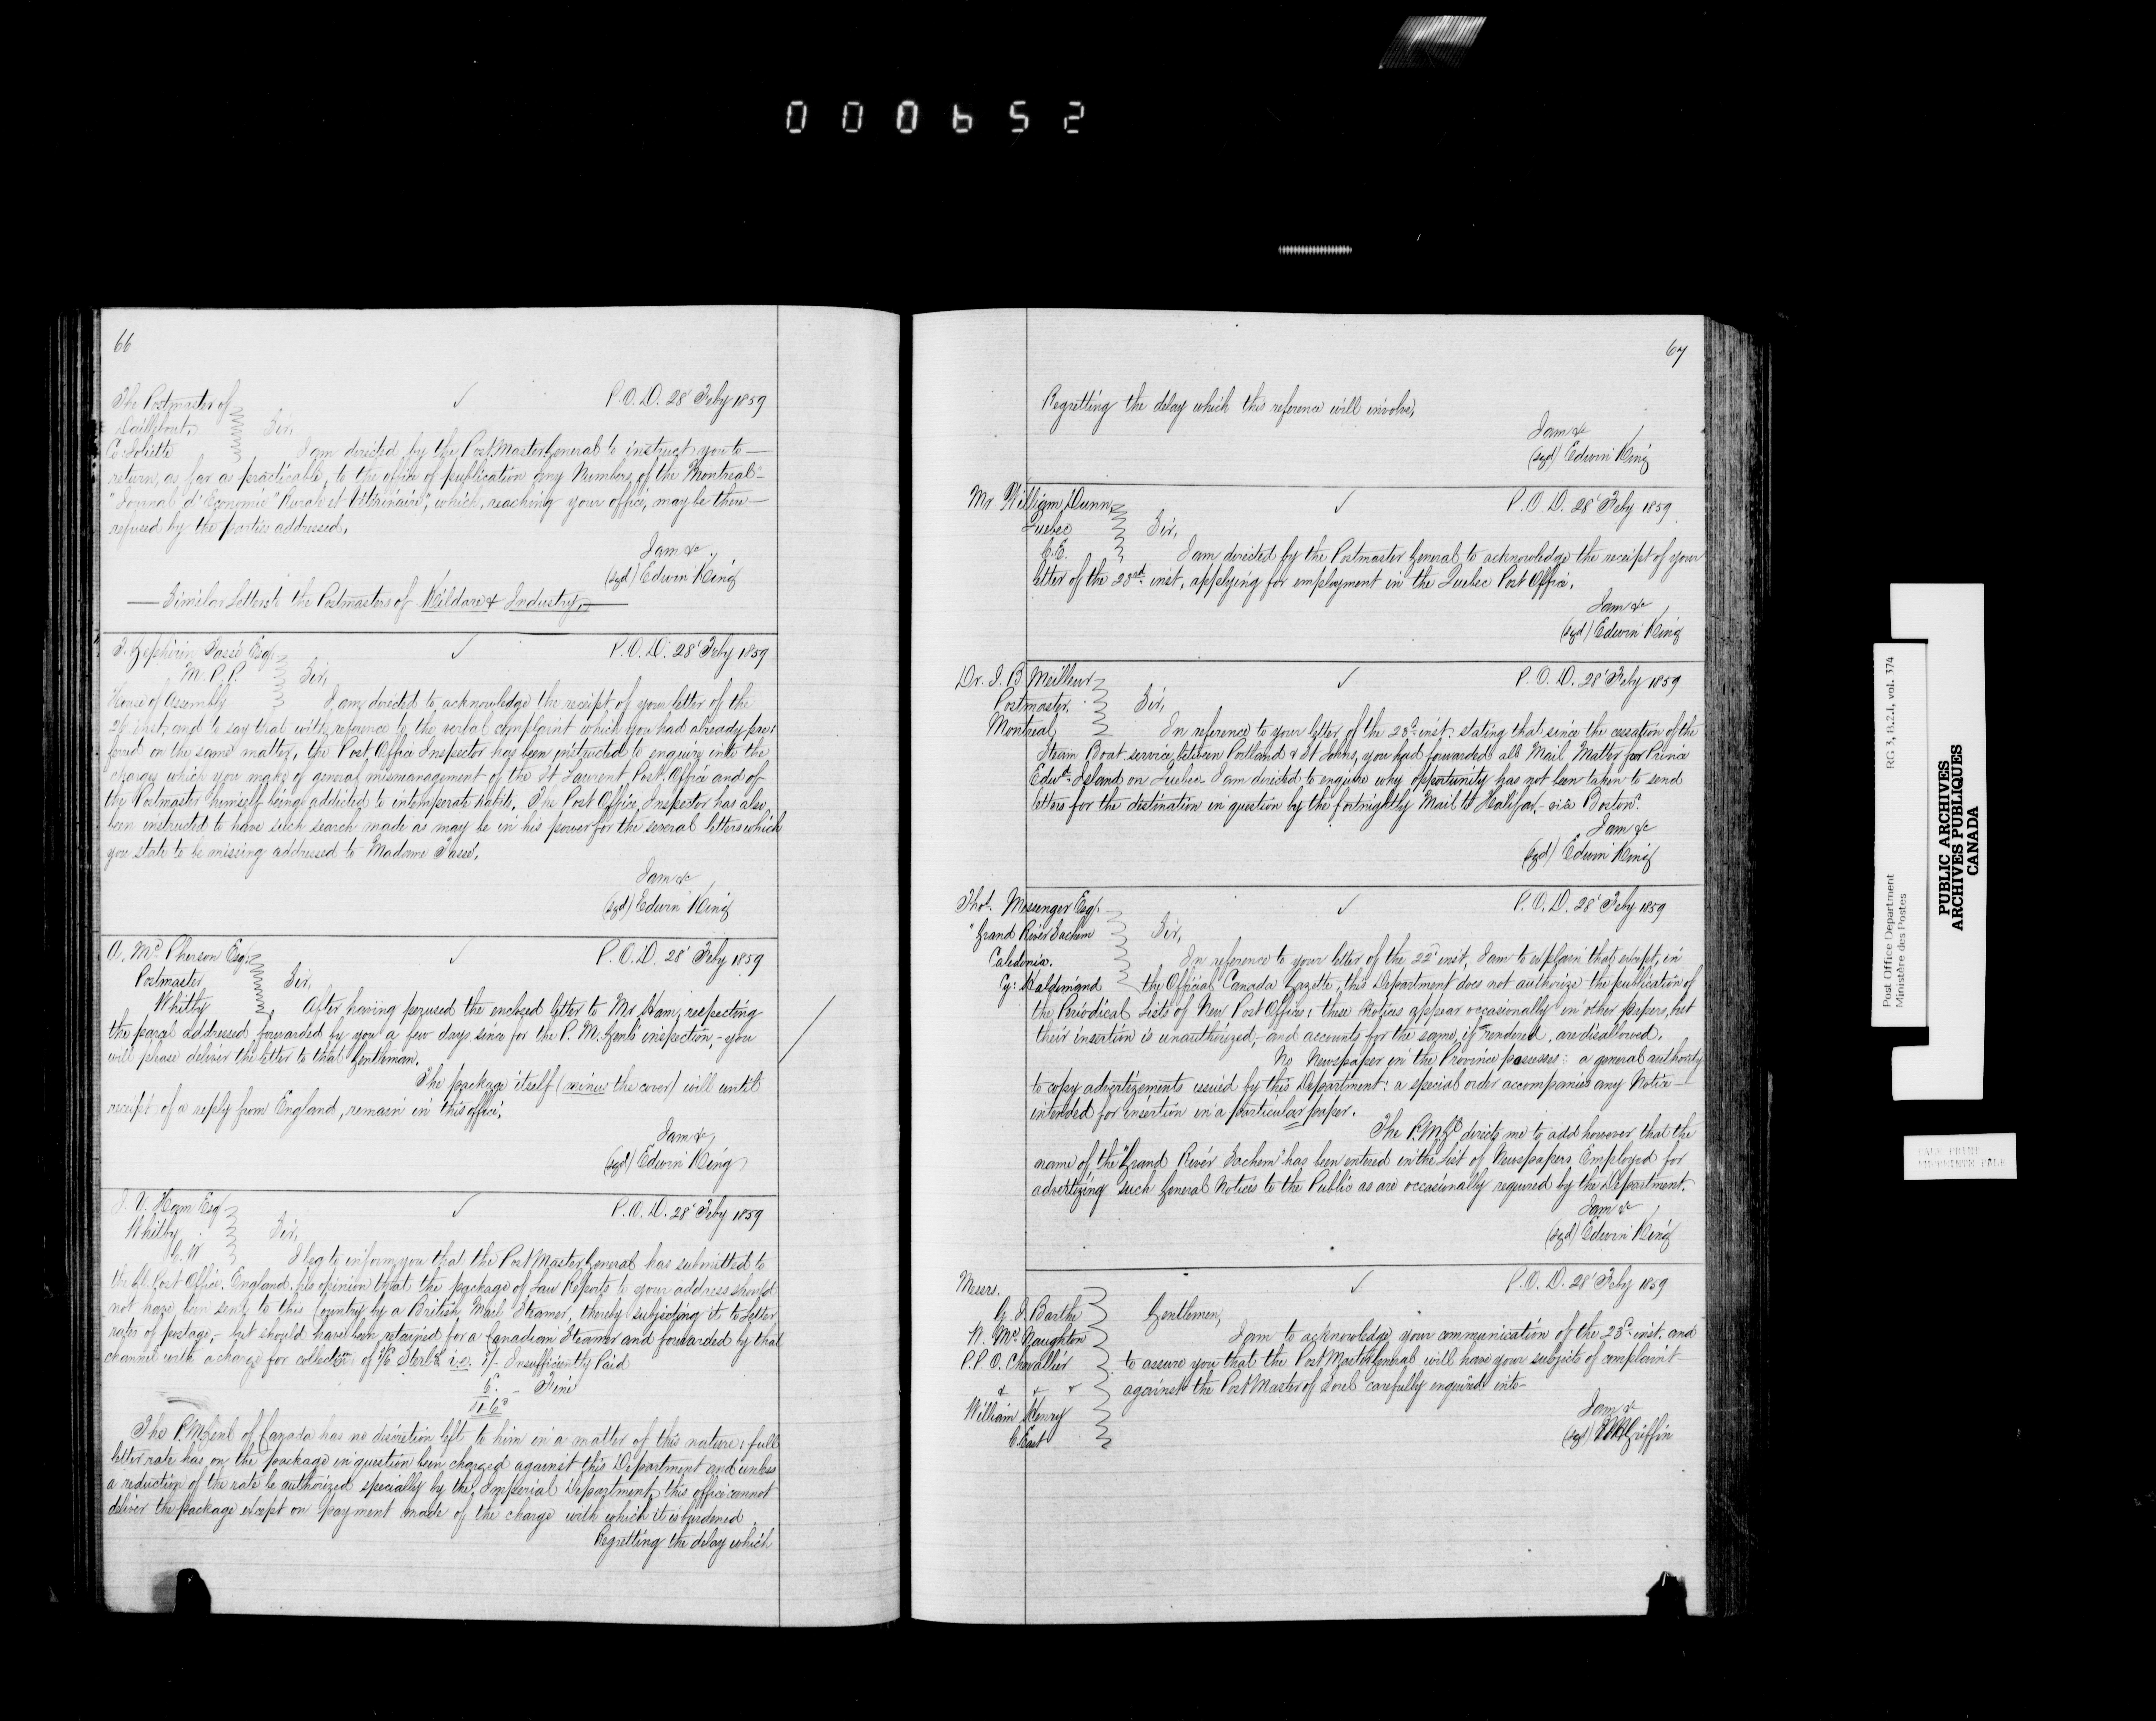 000652
66
The Postmaster of
Daillebout
Co Joliette
P.O.D. 28 Feby 1859
Sir,
I am directed by the Post Master General to instruct you to
return, as far as practicable, to the office of publication any Numbers of the Montreal
"Journal d'Economie Rurale et Vétérinaire", which, reaching your office, may be then
refused by the parties addressed.
I am &c
(sgd) Edwin King
Similar Letters to the Postmasters of Kildare & Industry.
J. Zephirin Tassé Esq.
M.P.P.
House of Assembly
P.O.D. 28' Feby 1859
Sir,
I am directed to acknowledge the receipt of your letter of the
inst. and to say that with reference to the verbal complaint which you had already pre-
ferred on the same matter, the Post Office Inspector has been instructed to enquire into the
charges which you make of general mismanagement of the St Laurent Post Office and of
the Postmaster himself being addicted to intemperate habits. The Post Office Inspector has also
been instructed to have such search made as may be in his power for the several letters which
you state to be missing addressed to Madame Tassé.
I am &c
(sgd) Edwin King
A. McPherson Esq.
Postmaster
Whitby
P.O.D. 28' Feby 1859
Sir,
After having perused the enclosed letter to Mr Ham, respecting
the parcel addressed forwarded by you a few days since for the P. M. Genl's inspection, - you
will please deliver the letter to that Gentleman.
The package itself (minus the cover) will until
receipt of a reply from England, remain in this office.
I am &c
(sgd) Edwin King
J. V. Ham Esq
Whitby
C.W
P.O.D. 28' Feby 1859
Sir,
I beg to inform you that the Post Master General has submitted to
the Gl. Post Office, England, his opinion that the package of Law Reports to your address should
not have been sent to this Country by a British Mail Steamer, thereby subjecting it to Letter
rates of postage, - but should have been retained for a Canadian Steamer and forwarded by that
channel with a charge for collection of 1/6 Sterlg. i.e. 1/- Insufficiently Paid
6. - Fine
1-6
The P.M. Genl of Canada has no discretion left to him in a matter of this nature: full
letter rate has on the package in question been charged against this Department and unless
a reduction of the rate be authorized specially by the Imperial Department, this office cannot
deliver the package except on payment made of the charge with which it is burdened.
Regretting the delay which
67
Regretting the delay which this reference will involve,
I am &c
(sgd) Edwin King
Mr William Dunn,
Quebec
C.E.
P.O.D. 28' Feby 1859
Sir,
I am directed by the Postmaster General to acknowledge the receipt of your
letter of the 23rd inst, applying for employment in the Quebec Post Office.
I am &c
(sgd) Edwin King
Dr. J. B Meilleur
Postmaster.
Montreal
P.O.D. 28' Feby 1859
Sir,
In reference to your letter of the 23d inst. stating that since the cessation of the
Steam Boat service between Portland & St Johns, you had forwarded all Mail Matter for Prince
Edwd. Island on Quebec I am directed to enquire why opportunity has not been taken to send
letters for the destination in question by the fortnightly Mail to Halifax - via Boston?
I am &c
(sgd) Edwin King
Thos. Messenger Esq.
"Grand River Sachem
Caledonia.
Cy: Haldimand
P.O.D. 28' Feby 1859
Sir,
In reference to your letter of the 22d inst, I am to explain that except, in
the Official Canada Gazette, this Department does not authorize the publication of
the Periodical Lists of New Post Offices: these Notices appear occasionally in other papers, but
their insertion is unauthorized, - and accounts for the same, if rendered, are disallowed.
No Newspaper in the Province possesses a general authority
to copy advertizements issued by this Department: a special order accompanies any Notice
intended for insertion in a particular paper.
The P.M.Gl directs me to add however that the
name of the "Grand River Sachem" has been entered in the List of Newspapers Employed for
advertizing such General Notices to the Public as are occasionally required by the Department.
I am &c
(sgd) Edwin King
Messrs.
G. J. Barthe
N. McNaughton
P.P.O. Chevallier
& & &
William Henry
C East
P.O.D. 28' Feby 1859
Gentlemen,
I am to acknowledge your communication of the 23d inst. and
to assure you that the Post Master General will have your subjects of complaint
against the Post Master of Sorel carefully enquired into -
I am &c
(sgd) W H Griffin
Post Office Department
Ministère des Postes
RG 3, B.2.1, vol. 374
PUBLIC ARCHIVES
ARCHIVES PUBLIQUES
CANADA